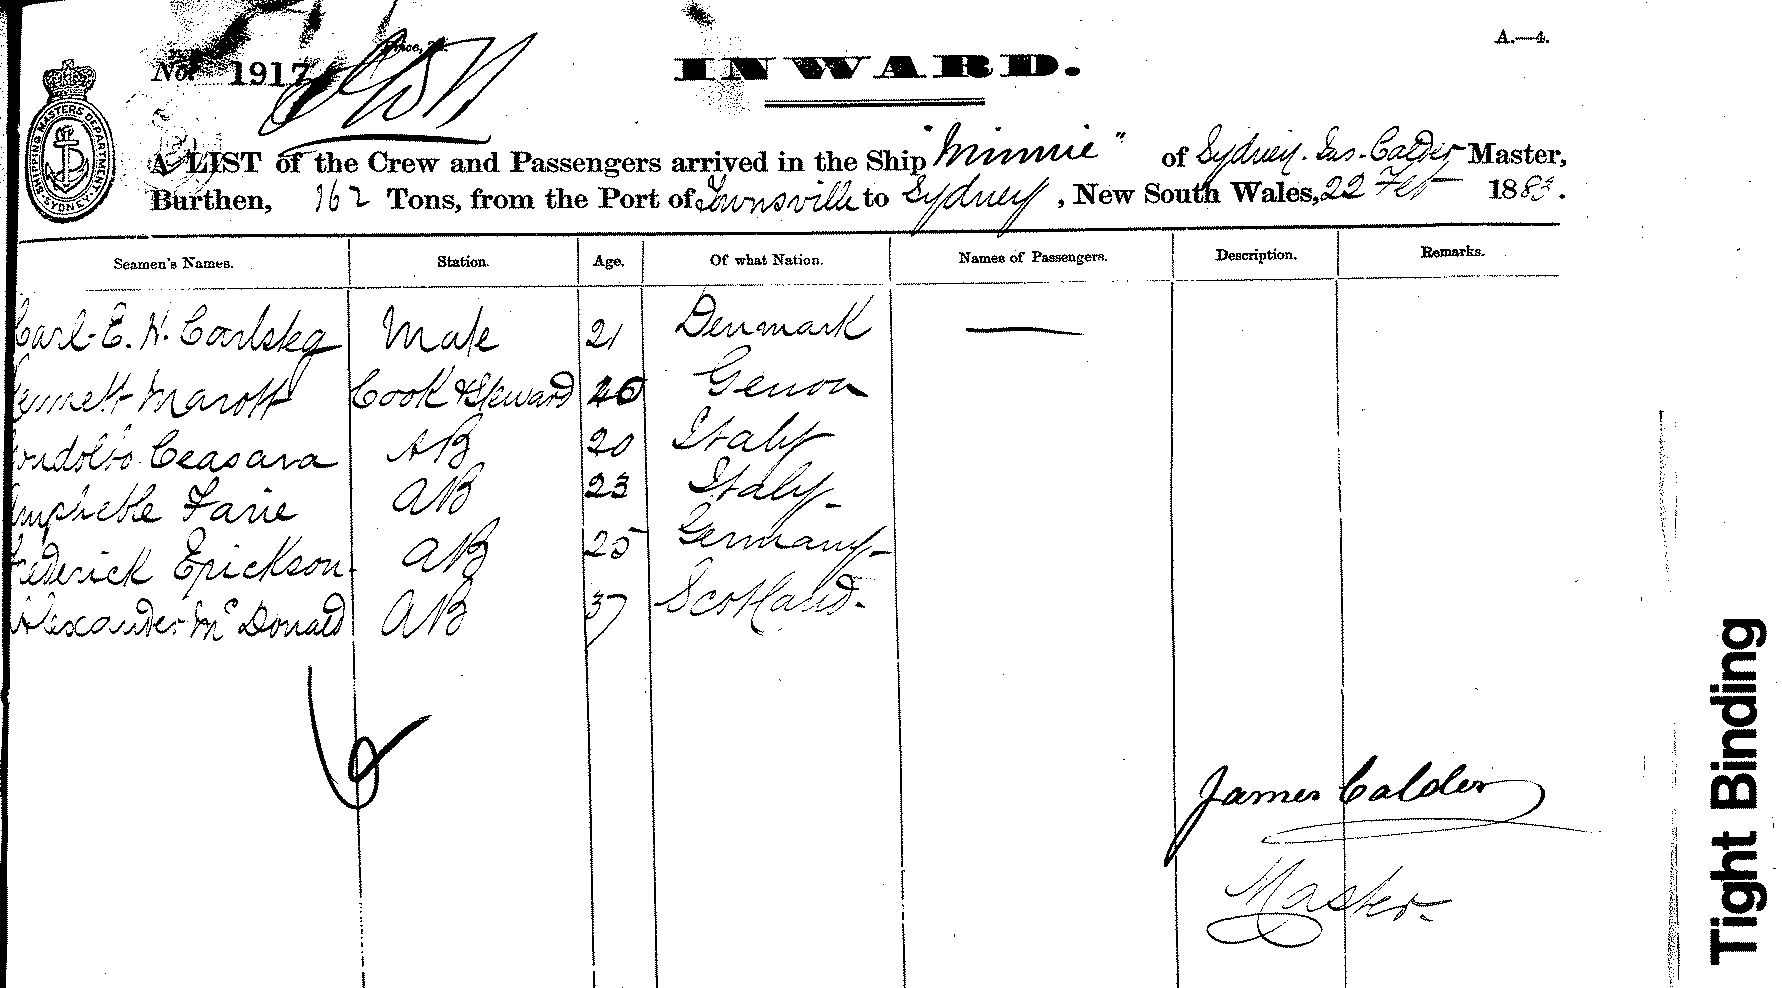 A.—4.
No. 1917
INWARD.
SHIPPING MASTERS DEPARTMENT SYDNEY
A LIST of the Crew and Passengers arrived in the Ship "Minnie" of Sydney. Jas. Calder Master,
Burthen, 162 Tons, from the Port of Townsville to Sydney, New South Wales, 22 Feb 1883.
Seamen's Names. Station. Age. Of what Nation. Names of Passengers. Description. Remarks.
Carl. E. H. Mate 21 Denmark —
Marott Cook & Steward Genoa
Ceasara AB 20 Italy
Farie AB 23 Italy
Frederick Erickson AB 25 Germany
Alexander McDonald AB 37 Scotland
James Calder
Master
Tight Binding